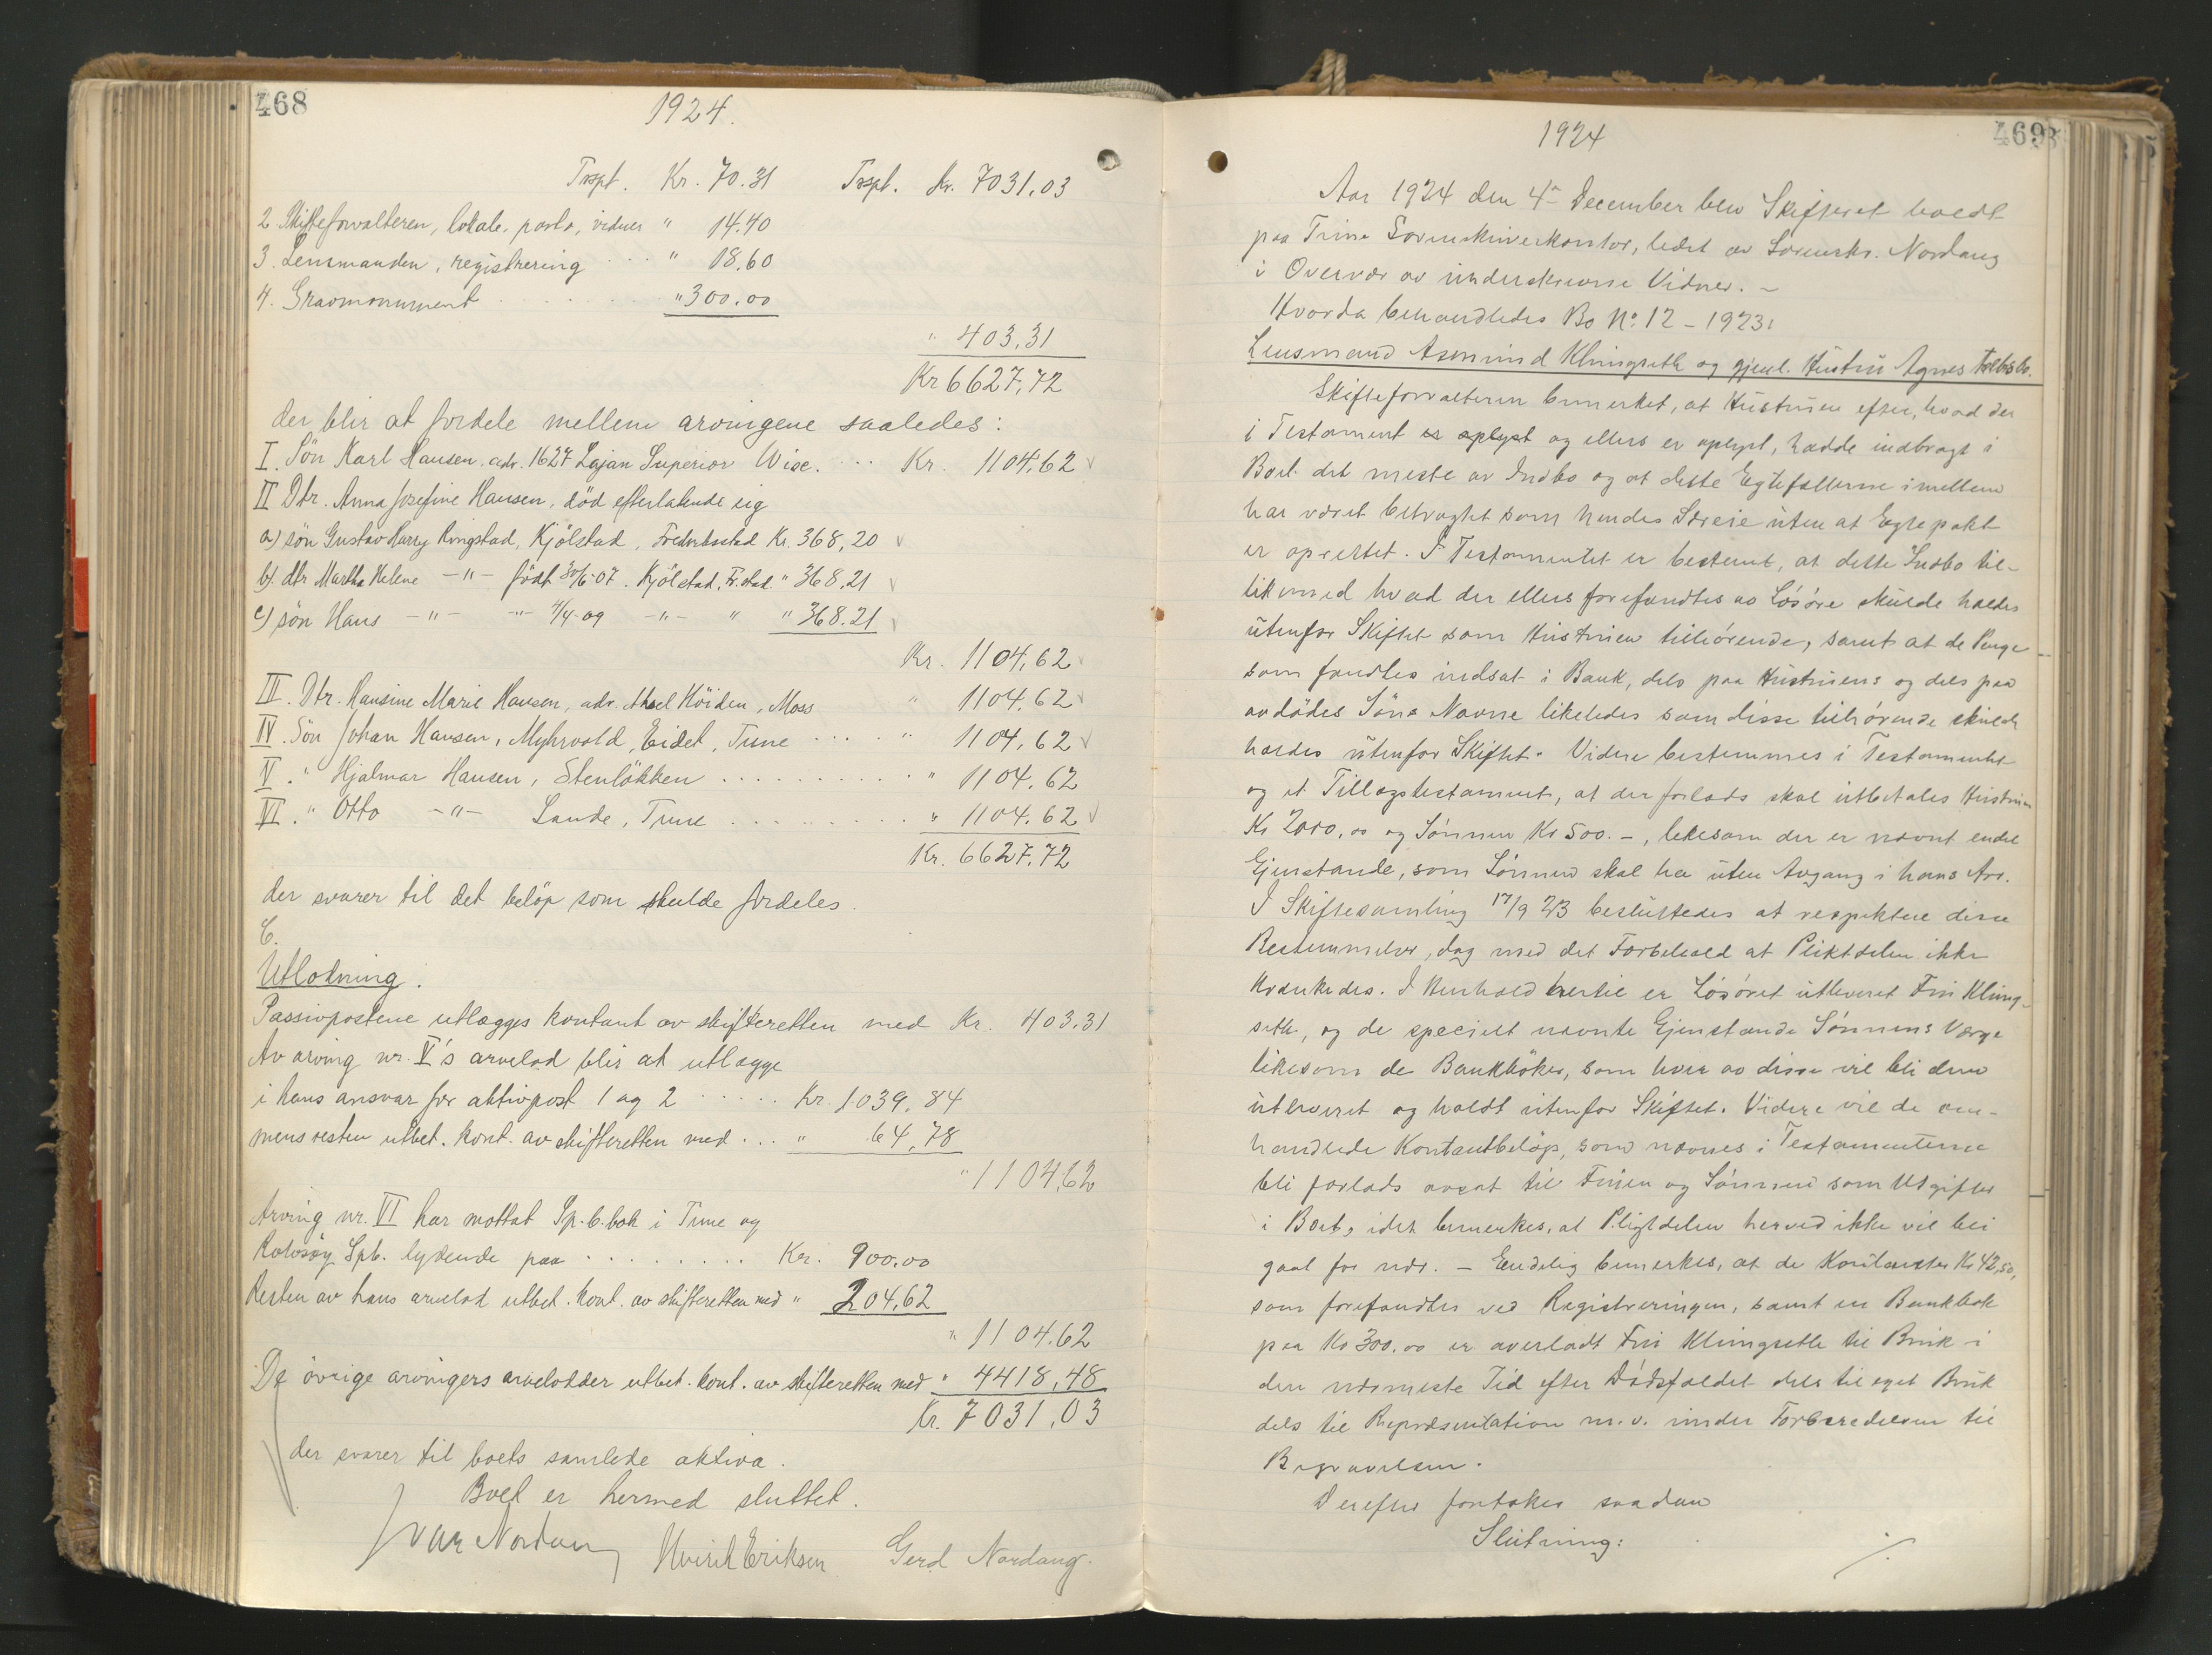 468
1924.
Trspt. Kr. 70.31 Trspt. Kr. 7031,03
2. Skifteforvalteren, lokale, porto, vidner " 14.40
3. Lensmanden, registrering " 18.60
4. Gravmonument " 300.00
" 403,31
Kr 6627,72
der blir at fordele mellem arvingene saaledes:
I. Sön Karl Hansen. adr. 1627 Superior Wisc. Kr. 1104,62
II Dtr. Anna Josefine Hansen, död efterlatende sig
a) sön Gustav Harry Ringstad, Kjölstad, Fredrikstad Kr. 368,20
b). dtr Martha Helene -"- födt 30/6-07. Kjölstad, Fr.stad. " 368,21
c) sön Hans -"- -"- 4/4-09 -"- " " 368.21
Kr. 1104,62
III. Dtr. Hansine Marie Hansen, adr. Höiden, Moss " 1104,62
IV. Sön Johan Hansen, Myhrvold, Eidet, Tune " 1104,62
V. " Hjalmar Hansen, Stenlökken " 1104.62
VI. " Otto -"- Sande, Tune " 1104.62
Kr. 6627,72
der svarer til det belöp som skulde fordeles.
C.
Utlodning.
Passivpostene utlægges kontant av skifteretten med Kr. 403.31
Av arving nr. V's arvelod blir at utlægge
i hans ansvar for aktivpost 1 og 2 Kr. 1039,84
mens resten utbet. kont. av skifteretten med " 64,78
" 1104,62
Arving nr. VI har mottat Sp.b.bok i Tune og
Rolvsöy Spb. lydende paa Kr. 900.00
Resten av hans arvelod utbet. kont. av skifteretten med " 204,62
" 1104.62
De övrige arvingers arvelodder utbet. kont. av skifteretten med " 4418,48
Kr. 7031,03
der svarer til boets samlede aktiva.
Boet er hermed sluttet.
Ivar Nordang Eriksen Gerd Nordang.
469
1924
Aar 1924 den 4- December blev Skifteret holdt
paa Tune Sorenskriverkontor, ledet av Sorenskr. Nordang
i Overvær av underskrevne Vidner. -
Hvorda behandledes Bo No. 12 - 1923:
Lensmand Asmund Klingseth og gjenl. Hustru Agnes fællesbo.
Skifteforvalteren bemerket, at Hustruen efter, hvad der
i Testament er oplyst og ellers er oplyst, hadde indbragt i
Boet det meste av Indbo og at dette Egtefællerne imellem
har været betragtet som hendes Særeie uten at Egtepakt
er oprettet. I Testamentet er bestemt, at dette Indbo til-
likemed hvad der ellers forefandtes av Lösöre skulde holdes
utenfor Skiftet som Hustruen tilhörende, samt at de Penge
som fandtes indsat i Bank, dels paa Hustruens og dels paa
avdödes Söns Navne likeledes som disse tilhörende skulde
holdes utenfor Skiftet. Videre bestemmes i Testamentet
og et Tillægstestament, at der forlods skal utbetales Hustruen
Kr 2000,00 og Sönnen Kr 500.-, likesom der er nævnt endel
Gjenstande, som Sönnen skal ha uten Avgang i hans Arv.
I Skiftesamling 17/9 23 besluttedes at respektere disse
Bestemmelser, dog med det Forbehold at Pliktdelen ikke
krænkedes. I Henhold hertil er Lösöret utleveret Fru Kling-
seth, og de specielt nævnte Gjenstande Sönnens Verge
likesom de Bankböker, som hver av disse vil bli dem
utleveret og holdt utenfor Skiftet. Videre vil de om-
handlede Kontantbelöp, som nævnes i Testamenterne
bli forlods avsat til Fruen og Sönnen som Utgifter
i Boet, idet bemerkes, at Pligtdelen herved ikke vil bli
gaat for nær. - Endelig bemerkes, at de Kontanter Kr 42,50,
som forefandtes ved Registreringen, samt en Bankbok
paa Kr 300.00 er overladt Fru Klingseth til Bruk i
den nærmeste Tid efter Dödsfaldet dels til eget Bruk
dels til Repræsentation m.v. under Forberedelsen til
Begravelsen.
Derefter foretokes saadan
Slutning:
./.